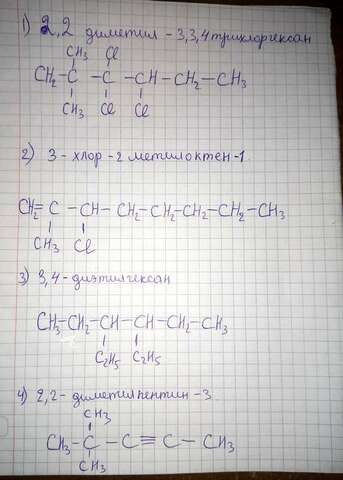 1) 2,2 диметил - 3,3,4 трихлоргексан
CH₃ Cl
CH₂-C - C - CH-CH₂-CH₃
CH₃ Cl Cl
2) 3-хлор-2 метилоктен-1
CH₂=C - CH-CH₂-CH₂-CH₂-CH₂-CH₃
CH₃ Cl
3) 3,4-диэтилгексан
CH₃-CH₂-CH-CH-CH₂-CH₃
C₂H₅ C₂H₅
4) 2,2-диметилпентин-3
CH₃
CH₃-C - C≡C-CH₃
CH₃